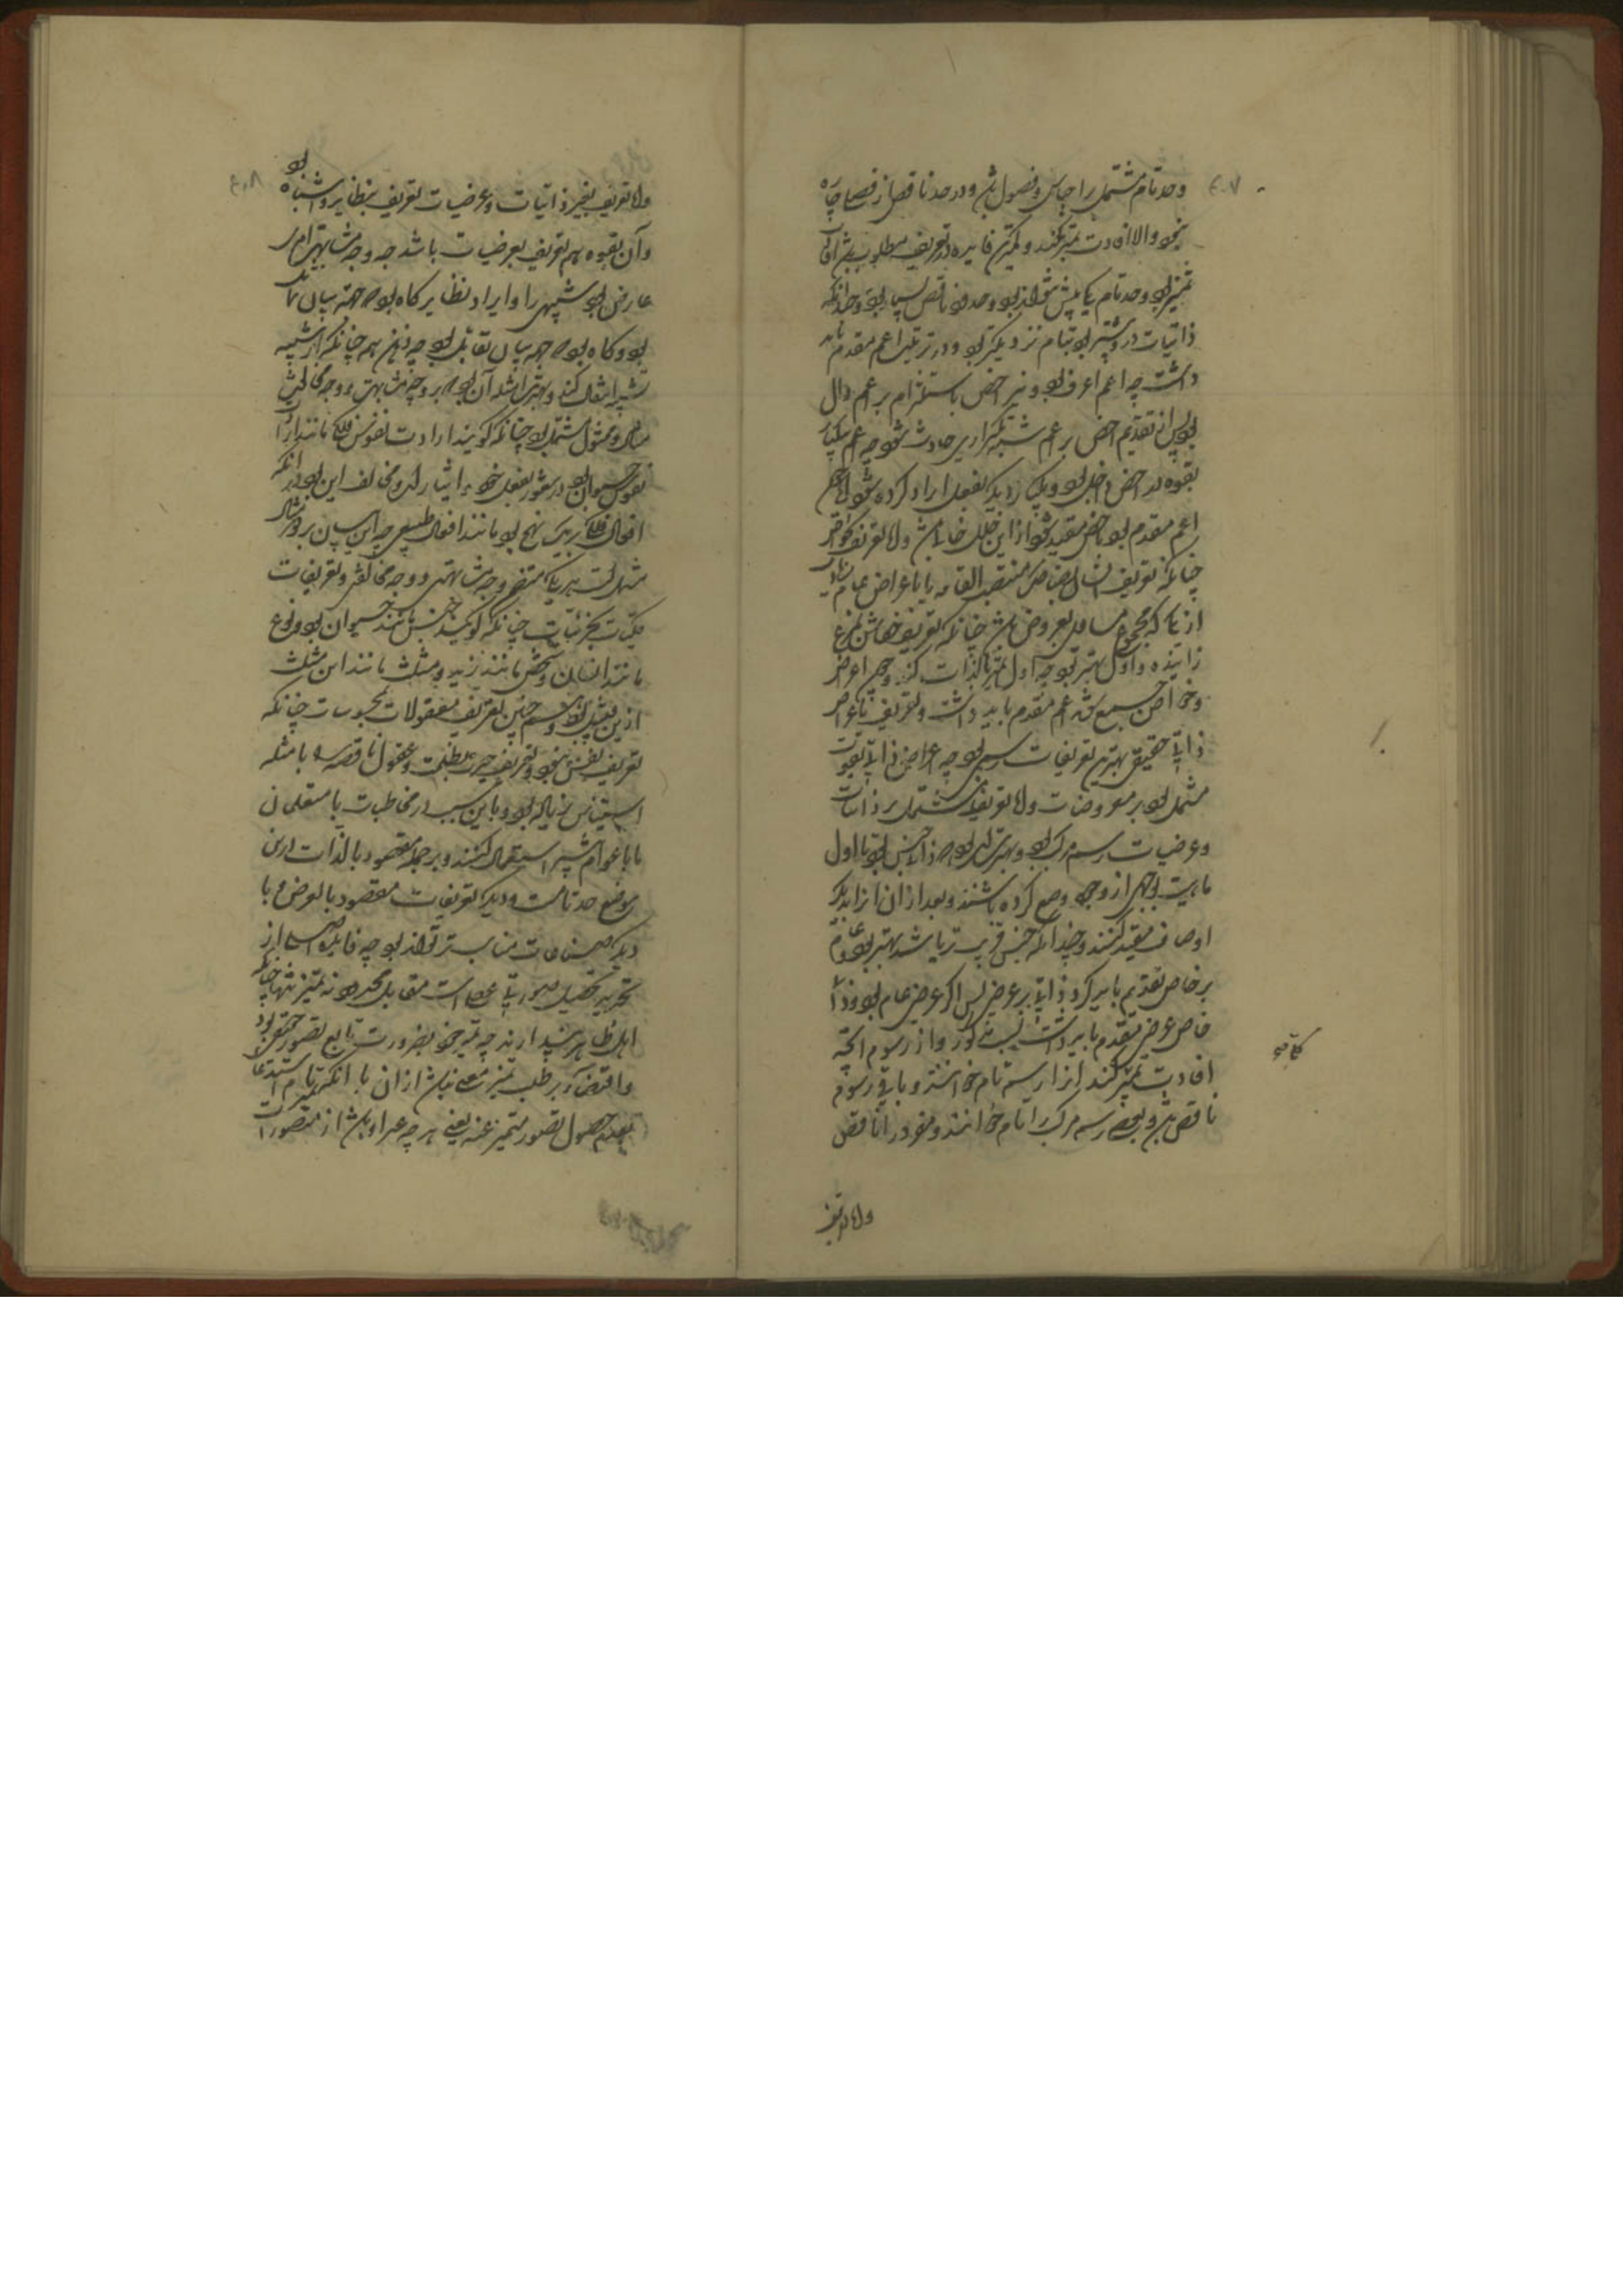 ۴۰۷
وحد تام مشتمل بر اجناس و فصول باشد و در حد ناقص از فصل چاره
نبود و الا افادت تمیز نکند و کمترین فایده در تعریف مطلوب
تمیز بود و حد تام یکی بیش نتواند بود و حدود ناقص بسیار بود و چندانکه
ذاتیات در او بیشتر بود بتمام نزدیکتر بود و در ترتیب اعم مقدم باید
داشت چه اعم اعرف بود و نیز اخص باستلزام بر اعم دال
بود پس از تقدیم اخص بر اعم شبه تکراری حادث شود چه اعم یکبار
بقوه در اخص داخل بود و یکبار دیگر بفعل ایراد کرده شود و چون
اعم مقدم بود باخص مقید شود از این خلل خالی باشد
چنانکه تعریف انسان بضاحک منتصب القامه یا باعراض عام
از آنها که مجموع مساوی معروض باشد چنانکه تعریف خفاش بمرغ
زاینده و اول بهتر بود چه اول تمیز بالذات کند و چون اعراض
و خواص جمع شود اعم مقدم باید داشت و تعریف باعراض
ذاتی حقیقی بهترین تعریفات رسمی بود چه اعراض ذاتی
مشتمل بود بر معروضات و اما تعریف مشتمل بر ذاتیات
و عرضیات رسم مرکب بود و بهتر آن بود که ذاتی جنس بود تا اول
ماهیت بوجهی از وجوه وضع کرده باشند و بعد از آن از دیگر
اوصاف مقید کنند و چندانکه جنس قریبتر باشد بهتر بود و عام
بر خاص تقدیم باید کرد و ذاتی بر عرضی پس اگر عرضی عام بود و ذاتی
خاص عرضی مقدم باید داشت بسبب مذکور و از رسوم آنچه
افادت تمیز کند آنرا رسم تام خوانند و باقی رسوم
ناقص باشد و بعضی رسم مرکب را تام خوانند و مفرد را ناقص
و اما تعریف
۴۰۸
و اما تعریف بغیر ذاتیات و عرضیات تعریف بنظایر و اشباه بود
و آن بقوه هم تعریف بعرضیات باشد چه وجه مشابهت امری
عارض بود شبیهین را و ایراد نظایر گاه بود که جهت بیان
بود و گاه بود که جهت بیان تقابل بود چه ذهن هم چنانکه از شبیه
بشبیه انتقال کند و بهترین امثله آن بود که بر وجه مشابهت و وجه مخالفت
مثال و ممثول مشتمل بود چنانکه گویند ارادت نفوس فلکی مانند ارادت
نفوس حیوان بود در شعور بفعل خود و ایثار آن و مخالف این بود در آنکه
افعال فلکی بر یک نهج بود مانند افعال طبیعی چه این بیان بر دو مثال
مشتمل است هر یک متضمن وجه مشابهتی و وجه مخالفتی و تعریفات
کلیات بجزئیات چنانکه گویند جنس مانند حیوان بود و نوع
مانند انسان و شخص مانند زید و مثلث مانند این مثلث
ازین قبیل بود و همچنین تعریف معقولات بمحسوسات چنانکه
تعریف نفس بنور و تعریف حیرت بظلمت و عقول ناقصه را بامثله
استیناس زیاده بود و باین سبب در مخاطبات با متعلمان
یا با عوام بیشتر استعمال کنند و بر جمله مقصود بالذات درین
موضع حد تامست و دیگر تعریفات مقصود بالعرض و با
دیگر صناعات مناسبتر تواند بود چه فایده اصلی از
تحدید تحصیل صورتی عقلی است مقابل محدود نه تمیز تنها چنانکه
اهل ظاهر پندارند چه تمیز خود بضرورت تابع تصور حقیقی بود
و اقتضار بر طلب تمیز معنی نباشد از آن با آنکه تمیز تام استدعاء
تقدیم حصول تصور متمیز عنه یعنی هر چه غیر او باشد از متصورات